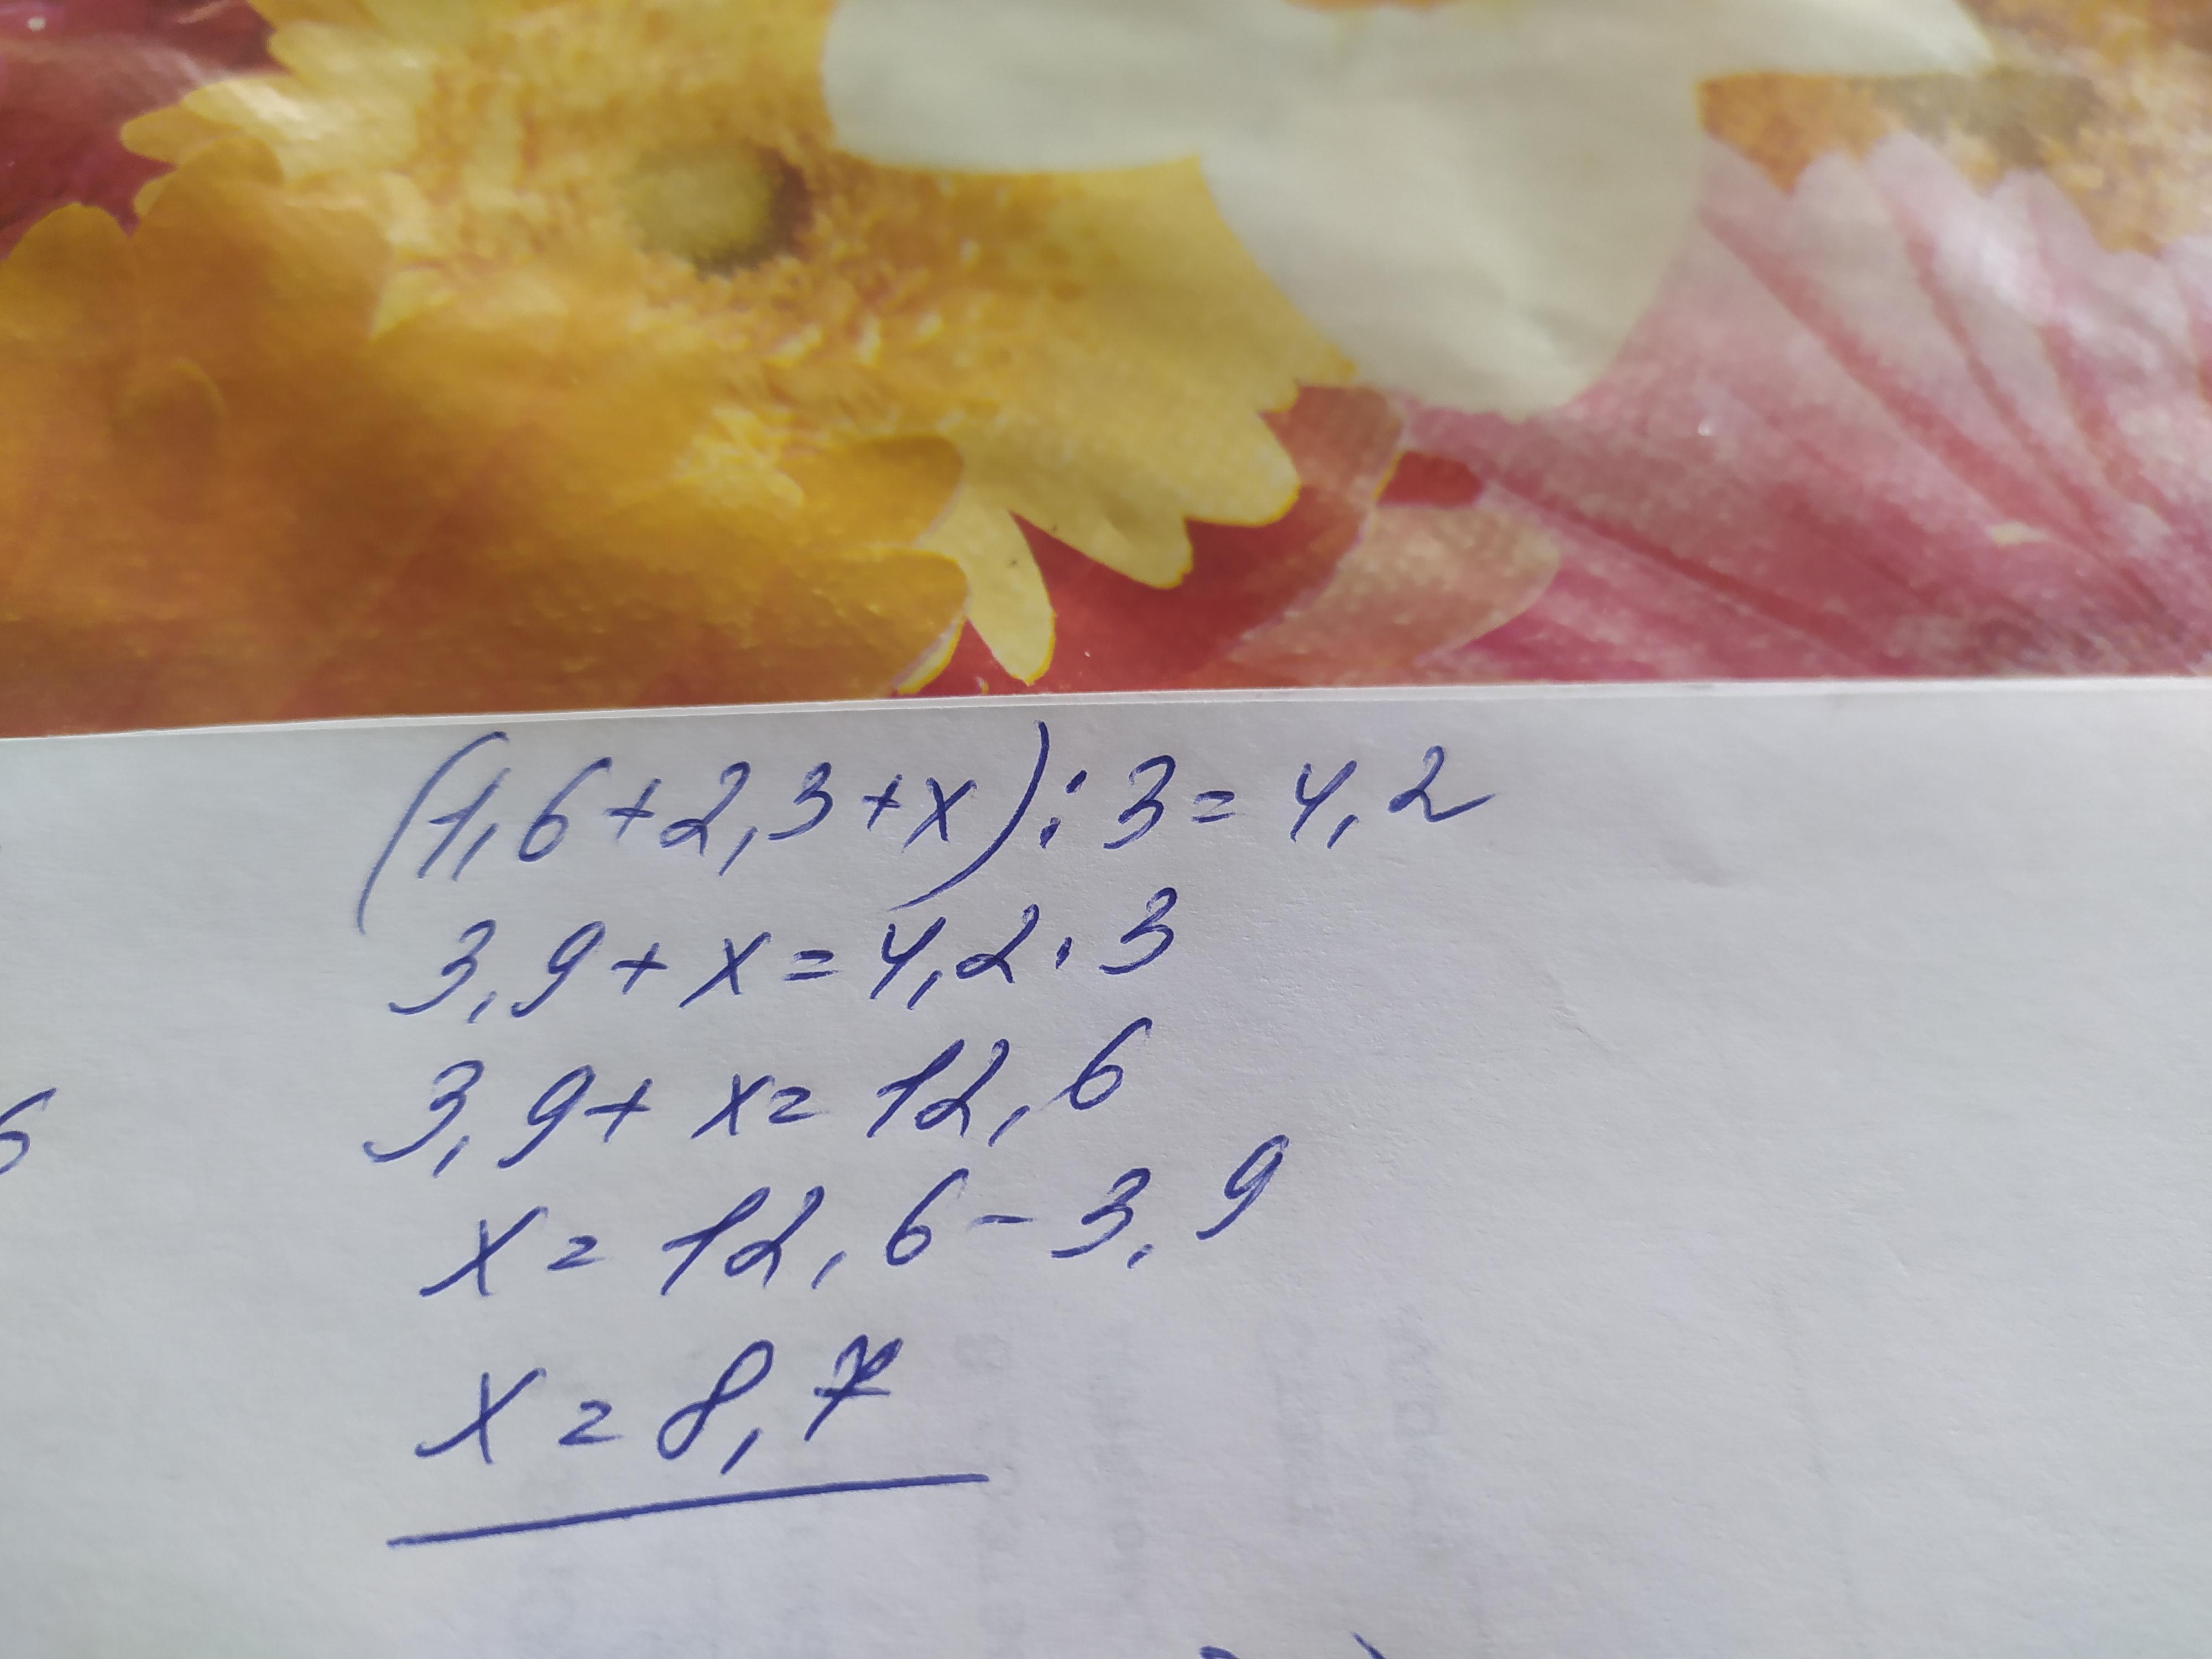 (1,6+2,3+x):3=4,2
3,9+x=4,2·3
3,9+x=12,6
x=12,6-3,9
x=8,7